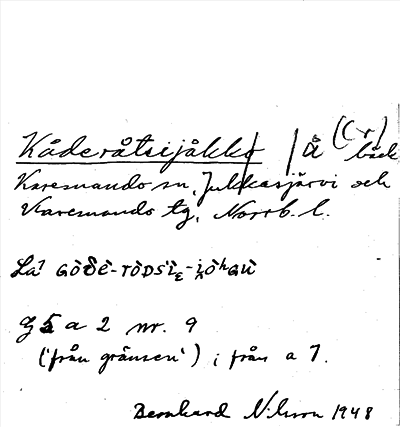 Kåderåtsijåkko / å (Cr) bäck
Karesuando sn, Jukkasjärvi och
Karesuando tg, Norrb. l.
La?
G 5 a 2 nr. 9
('från gränsen') ; från a 7.
Bernhard Nilsson 1948